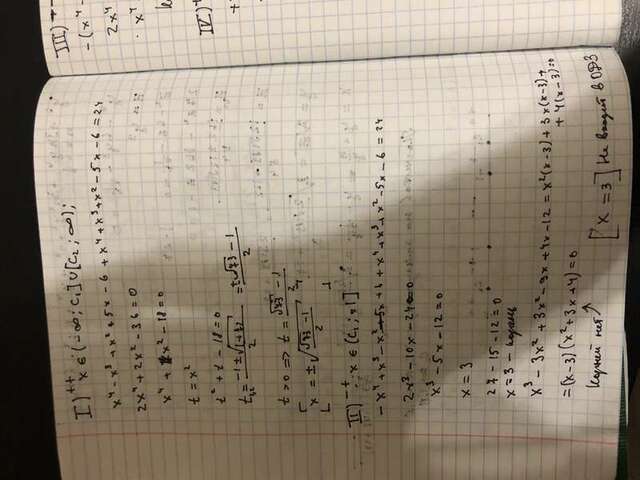 I)⁺⁺ x ∈ (-∞; C₁] ∪ [C₂; ∞);
x⁴ - x³ + x² + 5x - 6 + x⁴ + x³ + x² - 5x - 6 = 24
2x⁴ + 2x² - 36 = 0
x⁴ + x² - 18 = 0
t = x²
t² + t - 18 = 0
t₁,₂ = (-1 ± √(1+72))/2 = (±√73 - 1)/2
t > 0 => t = (√73 - 1)/2
[x = ± √((√73 - 1)/2)]
II)⁻⁺ x ∈ (C₁; -1]
-x⁴ + x³ - x² - 5x + 6 + x⁴ + x³ + x² - 5x - 6 = 24
2x³ - 10x - 24 = 0
x³ - 5x - 12 = 0
x = 3
27 - 15 - 12 = 0
x = 3 - корень
x³ - 3x² + 3x² - 9x + 4x - 12 = x²(x-3) + 3x(x-3) +
+ 4(x-3) = 0
= (x-3)(x² + 3x + 4) = 0
Корней нет
[x = 3] Не входит в ОДЗ
III)
-(x⁴
2x⁴
x⁴
IV)